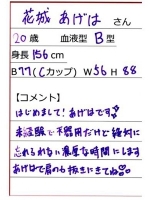 花城 あげは さん
20歳 血液型 B型
身長156cm
B77(Cカップ) W56 H88
【コメント】
はじめまして！あげはです
未経験で不器用だけど絶対に
忘れられない濃厚な時間にします
あげはで肩の力抜きにきてね